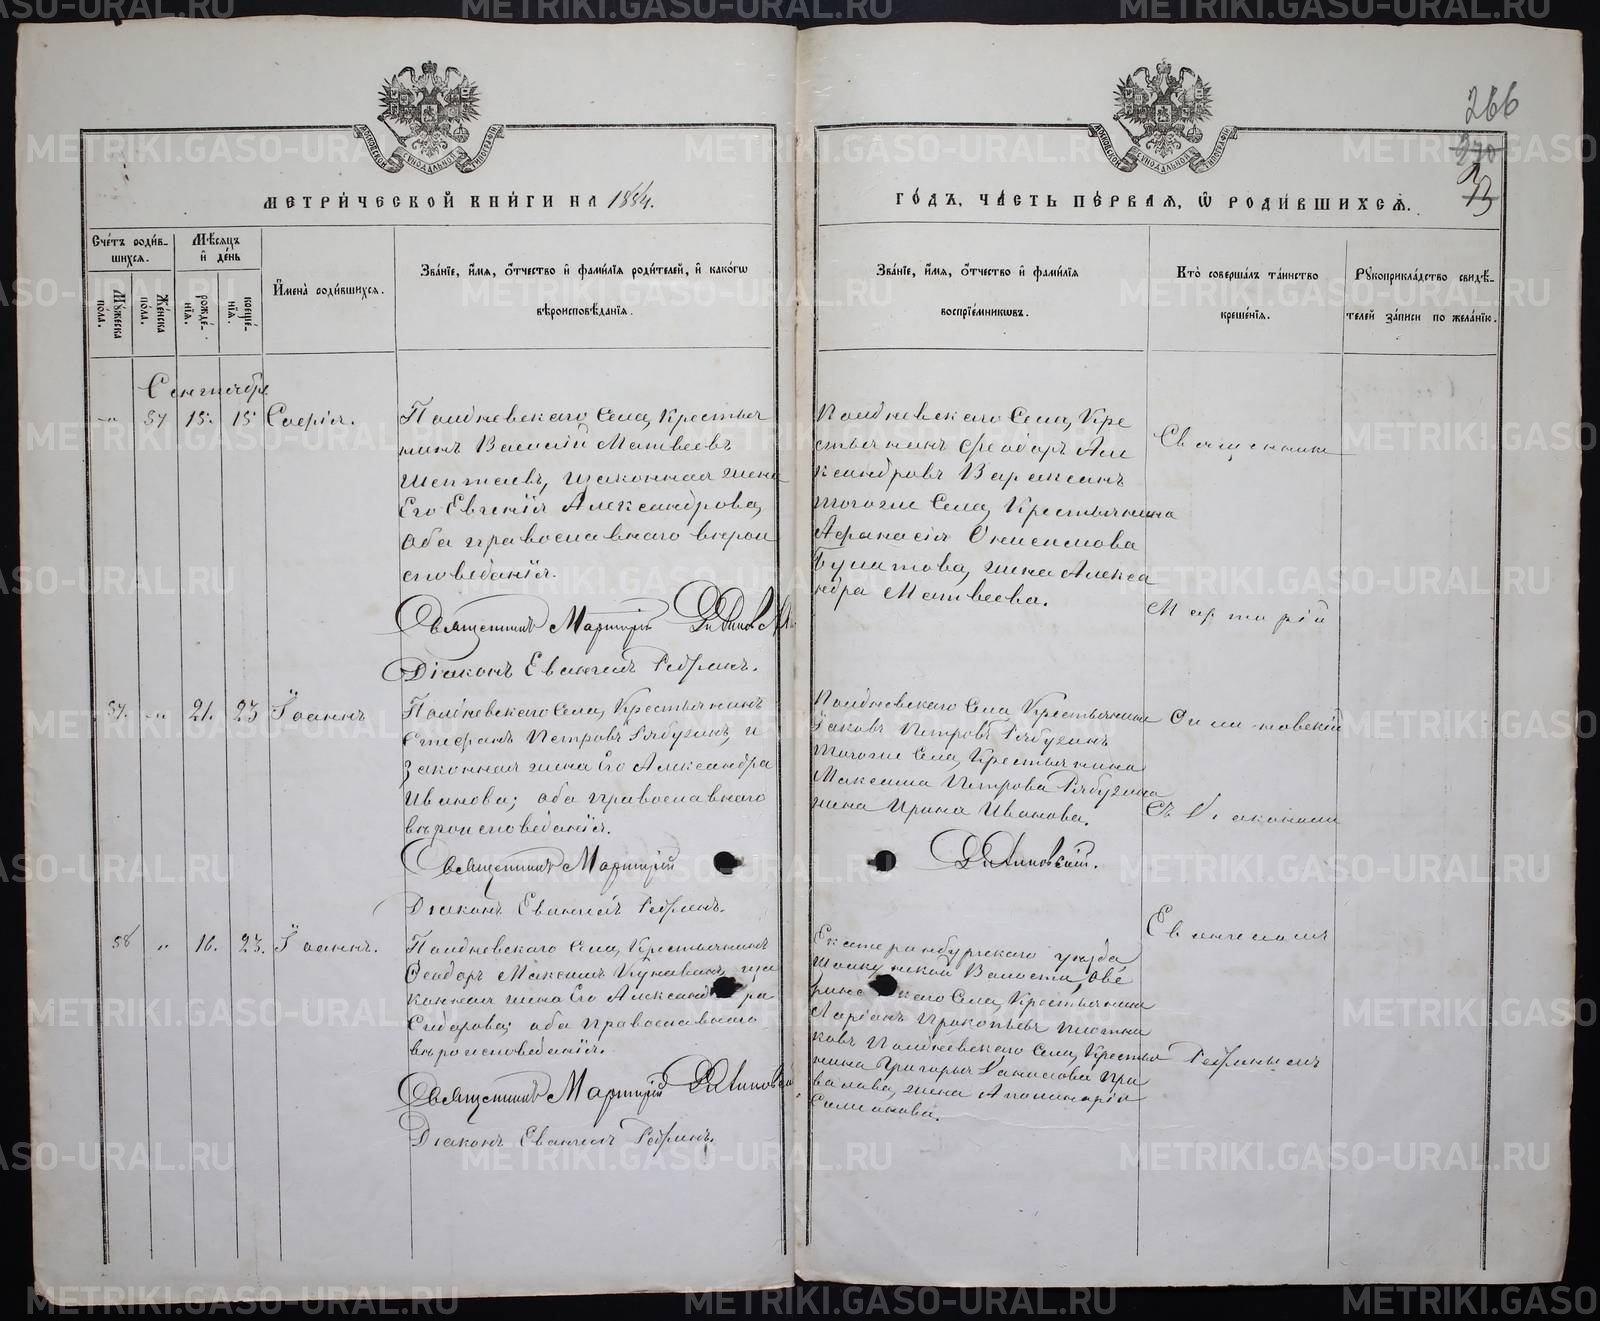 METRIKI.GASO-URAL.RU
266
270
МЕТРИ́ЧЕСКОЙ КНИ́ГИ НА 1884.
ГО́ДЪ, ЧА́СТЬ ПЕ́РВАЯ, Ѿ РОДИ́ВШИХСЯ.
Сче́тъ роди́в-
шихся.
Мѣ́сяцъ
и҆ де́нь
Мꙋ́жеска по́ла.
Же́нска по́ла.
рожде́-
нїя.
креще́-
нїя.
И҆мена̀ роди́вшихся.
Зва́нїе, и҆́мя, о҆́тчество и҆ фами́лїя роди́телей, и҆ како́гѡ
вѣроисповѣ́данїя.
Зва́нїе, и҆́мя, о҆́тчество и҆ фами́лїя
воспрїе́мникѡвъ.
Кто̀ соверша́лъ та́инство
креще́нїя.
Рꙋкоприкла́дство свидѣ́-
телей за́писи по жела́нїю.
Сентябрь
" 57 15. 15 Софія.
Полдневскаго Села, Крестья
нинъ Василій Матвеевъ
Шептаевъ, и законная жена
Его Евгенія Александрова,
оба православнаго вѣрои
сповѣданія.
Священникъ Мартирій
Діаконъ Евангелъ Ребринъ.
Полдневскаго Села, Кре
стьянинъ Феодоръ Але
ксандровъ Вараксинъ
тогоже Села, Крестьянина
Афанасія Онисимова
Булатова, жена Алекса
ндра Матвеева.
Священникъ
Мартирій
57. " 21. 23 Іоаннъ
Полдневскаго Села, Крестьянинъ
Стефанъ Петровъ Рябухинъ, и
законная жена Его Александра
Иванова; оба православнаго
вѣроисповѣданія.
Священникъ Мартирій
Діаконъ Евангелъ Ребринъ.
Полдневскаго Села Крестьянинъ
Іаковъ Петровъ Рябухинъ
тогоже Села, Крестьянина
Максима Петрова Рябухина
жена Ирина Иванова.
съ Діакономъ
58 " 16. 23. Іоаннъ.
Полдневскаго Села, Крестьянинъ
Феодоръ Максимъ и за
конная жена Его Александра
Сидорова; оба Православнаго
вѣроисповѣданія.
Священникъ Мартирій
Діаконъ Евангелъ Ребринъ.
Екатеринбургскаго уѣзда
Волости,
Села, Крестьянинъ
Ларіонъ Прокопьевъ Плотни
ковъ Полдневскаго Села, Крестья
нина Григорья Данилова При
валова, жена Аполинарія
Симеонова.
Евангеломъ
Ребринымъ